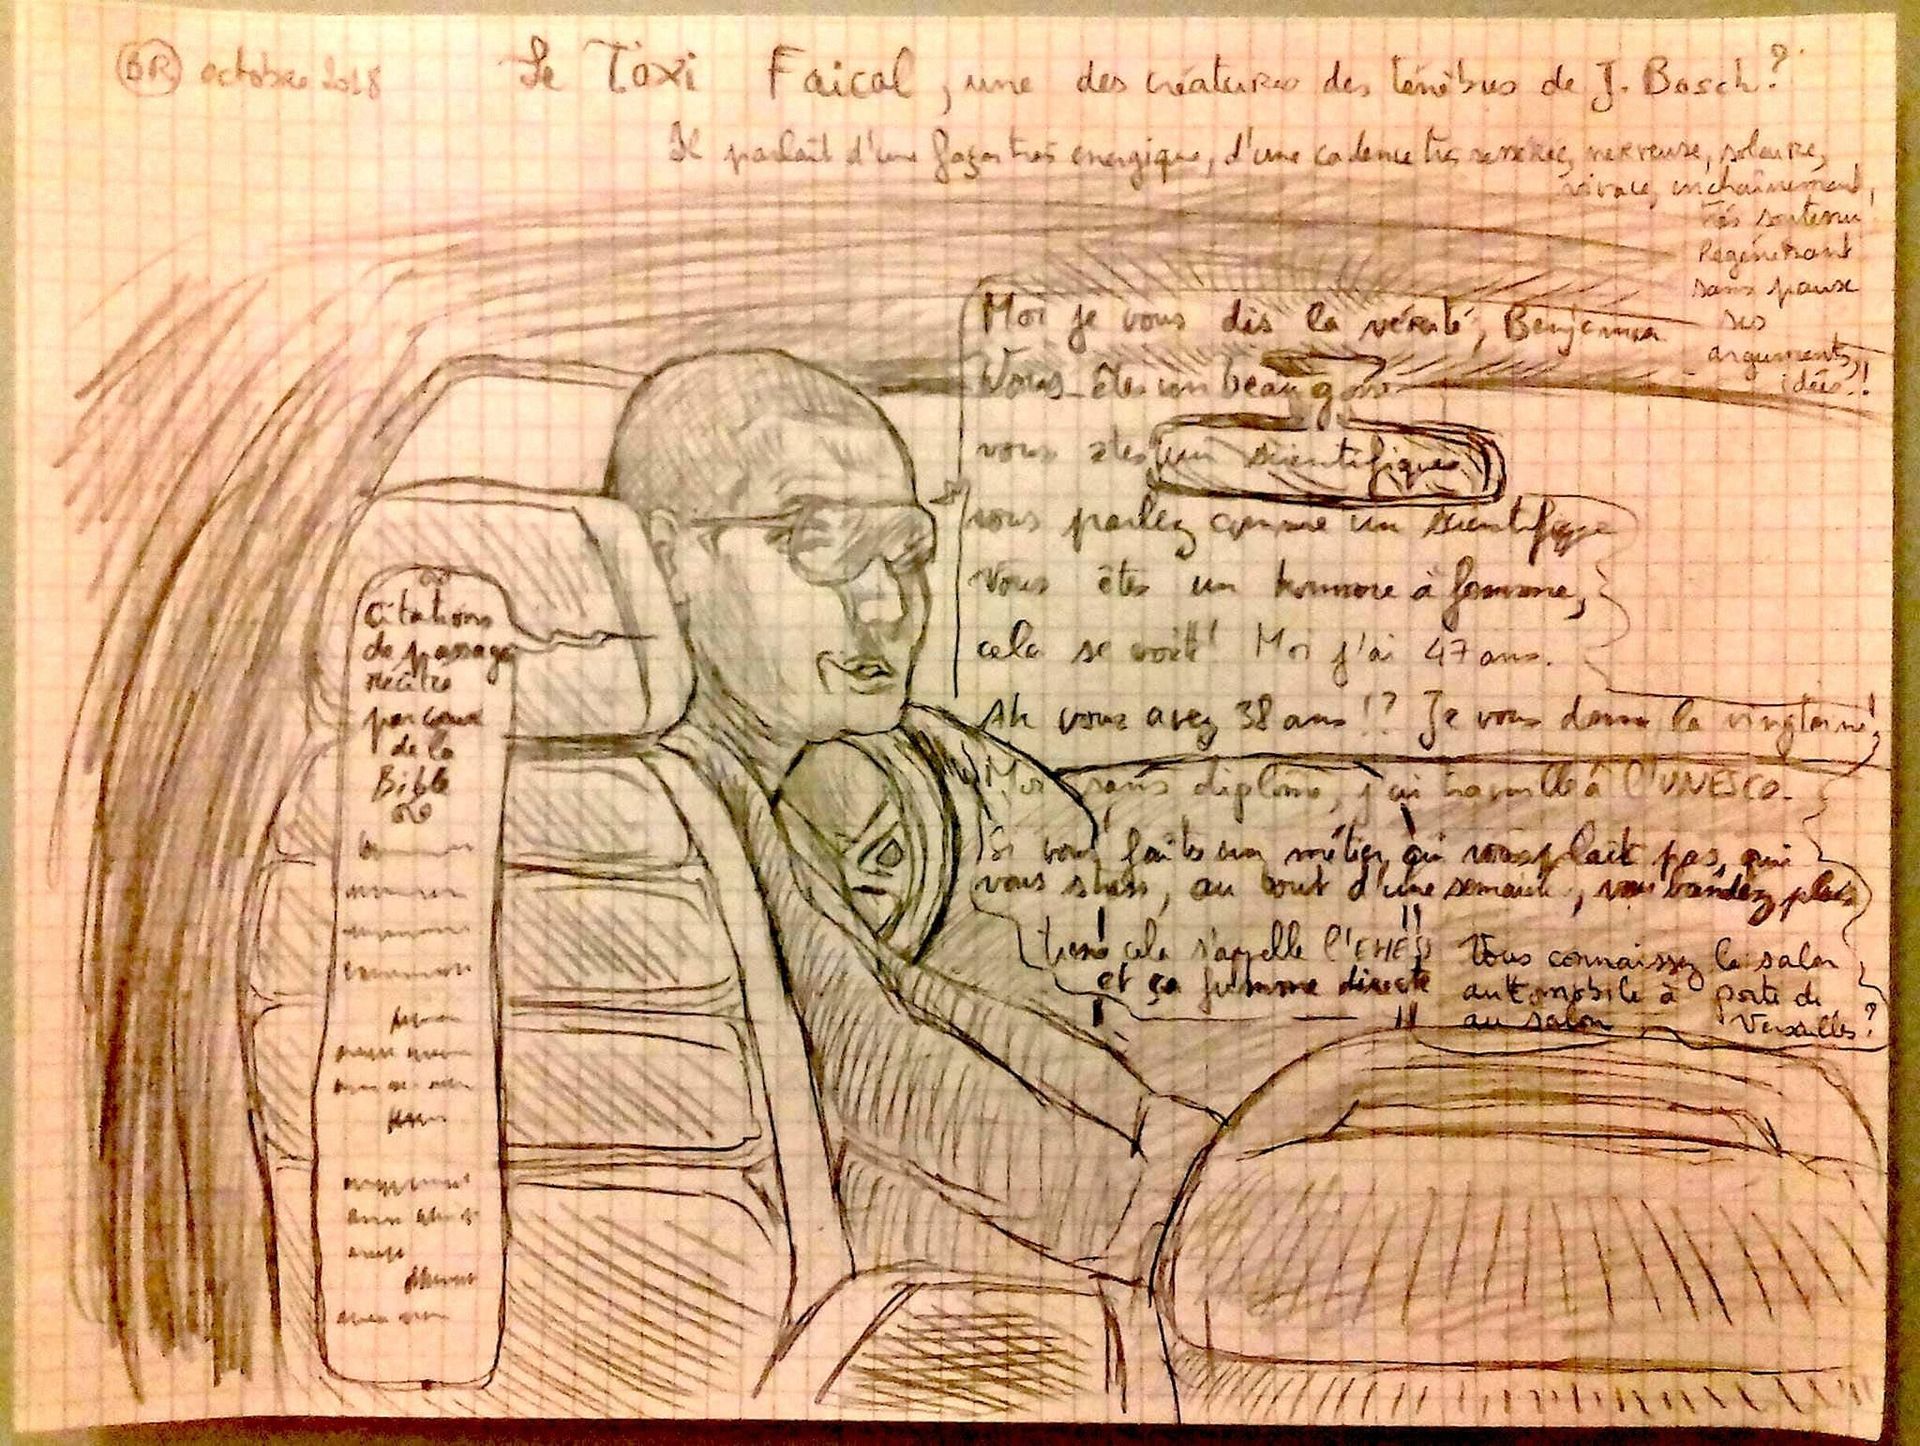 BR octobre 2018
Le Taxi Faical, une des créatures des ténèbres de J. Bosch?
Il parlait d'une façon très énergique, d'une cadence très serrée, nerveuse, solaire,
vivace, enchaînement,
très soutenu
Régénérant
sans pause
ses
arguments,
idées!
Moi je vous dis la vérité, Benjamin
Vous êtes un beau goss
vous etes un scientifique
vous parlez comme un scientifique
Vous êtes un homme à femme,
cela se voit! Moi j'ai 47 ans.
Ah vous avez 38 ans!? Je vous donne la vingtaine!
Moi sans diplôme, j'ai travaillé à l'UNESCO.
Si vous faites un métier qui vous plait pas, qui
vous stress, au bout d'une semaine, vous bandez plus
cela s'appelle l'EHESS
et ça fume directe
Vous connaissez le salon
automobile à porte de
au salon Versailles?
Citations
de passage
récités
par coeur
de la
Bible